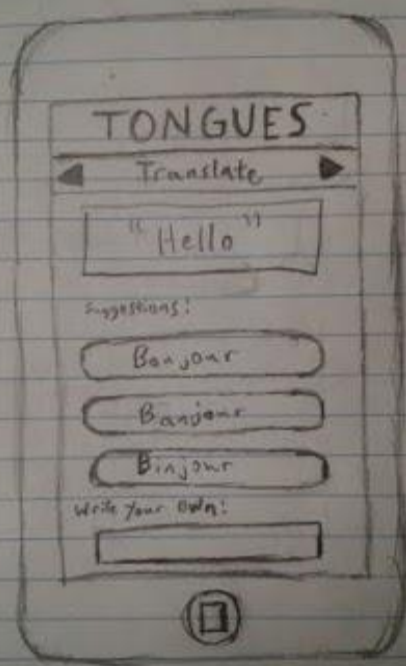 TONGUES
Translate
"Hello"
Suggestions:
Bonjour
Banjour
Binjour
Write Your Own: